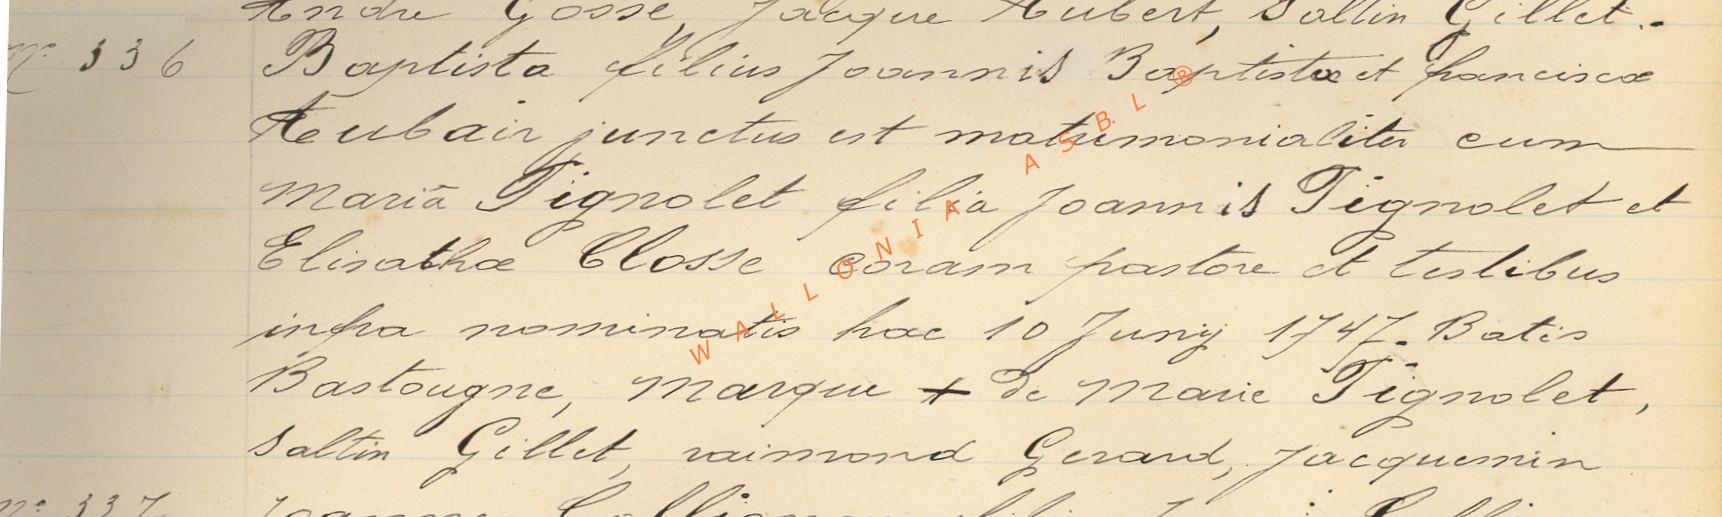 André Gosse, Jacque Aubert, Saltin Gillet.-
N° 336 Baptista filius Joannis Baptistæ et franciscæ
Aeubair junctus est matrimonialiter cum
Mariâ Tignolet filia Joannis Tignolet et
Elisathæ Closse coram pastore et testibus
infra nominatis hac 10 Junij 1747. Batis
Bastougne, Marque + de Marie Tignolet,
Saltin Gillet, raimond Gerard, Jacquemin
N° 337 Joannes
WALLONIA ASBL ®